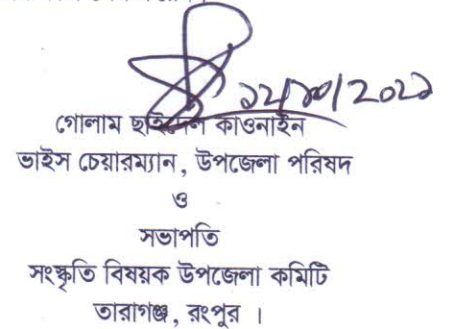 ১২/১০/২০২১
গোলাম কাওনাইন
ভাইস চেয়ারম্যান, উপজেলা পরিষদ
ও
সভাপতি
সংস্কৃতি বিষয়ক উপজেলা কমিটি
তারাগঞ্জ, রংপুর ।